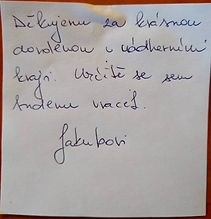 Děkujeme za krásnou
dovolenou v nádherném
kraji. Určitě se sem
budeme vracet.
Jakubovi